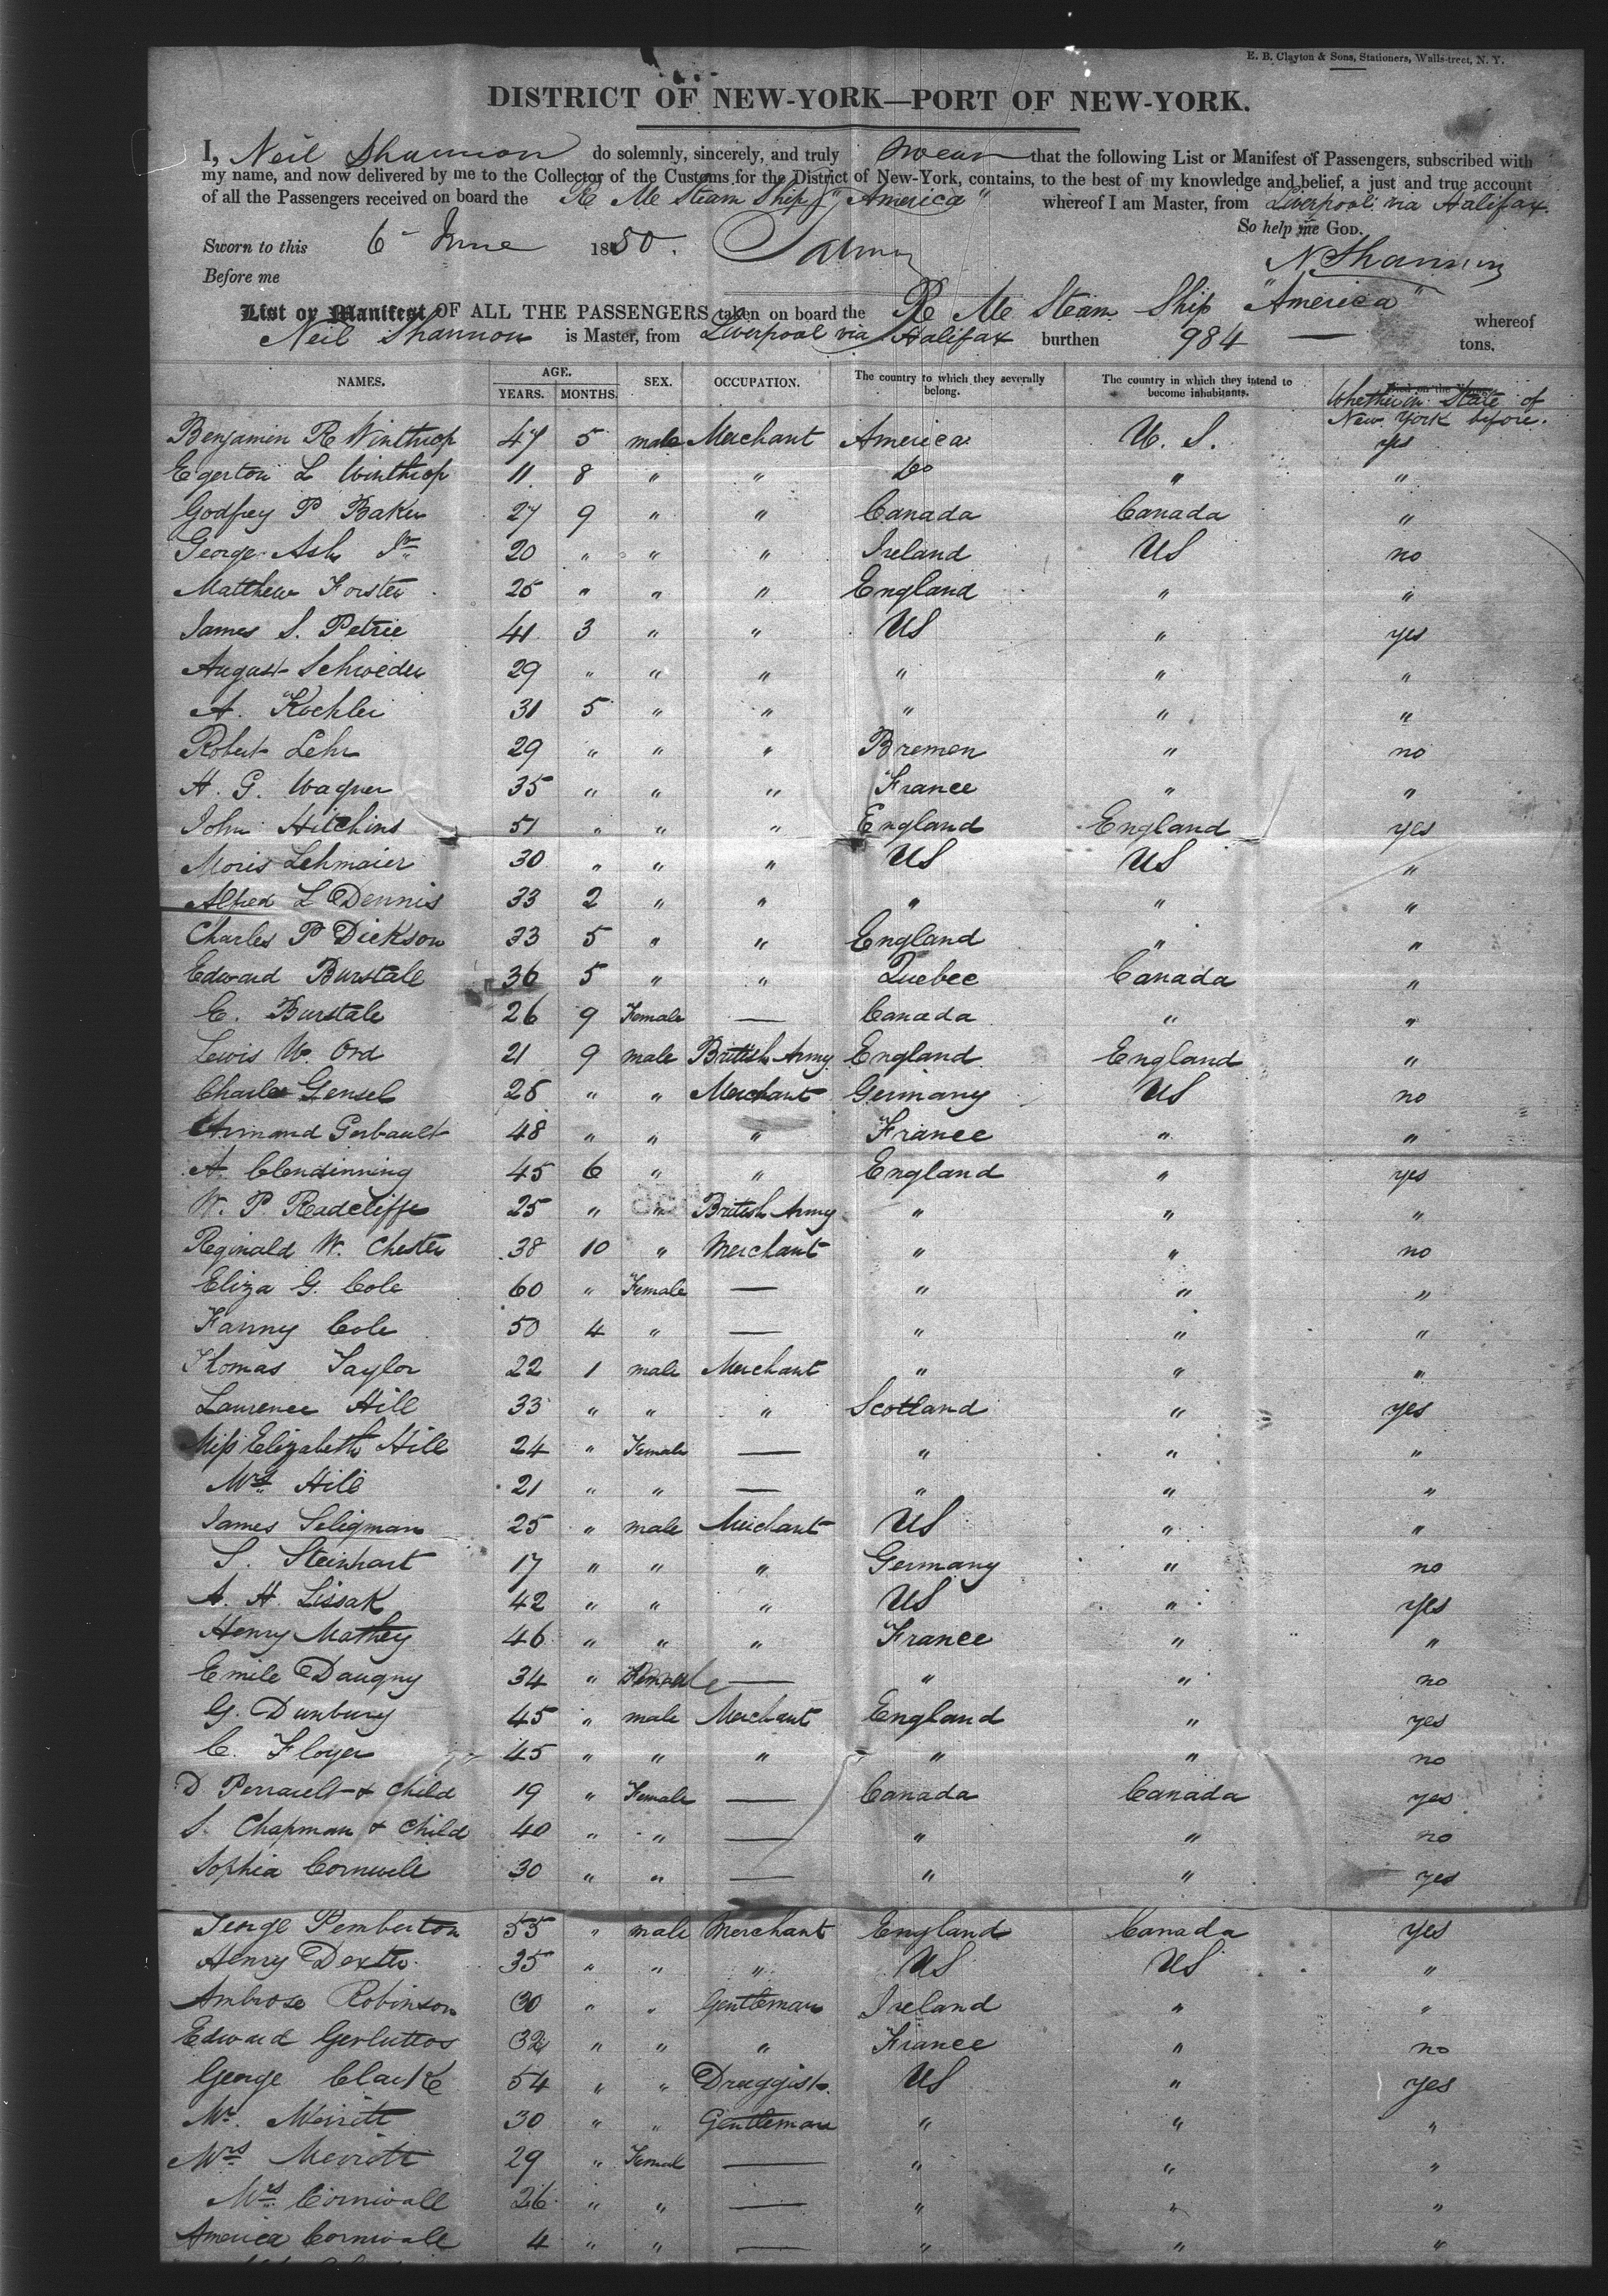 E. B. Clayton & Sons, Stationers, Wall-street, N. Y.
DISTRICT OF NEW-YORK—PORT OF NEW-YORK.
I, Neil Shannon do solemnly, sincerely, and truly swear that the following List or Manifest of Passengers, subscribed with
my name, and now delivered by me to the Collector of the Customs for the District of New-York, contains, to the best of my knowledge and belief, a just and true account
of all the Passengers received on board the R M Steam Ship "America" whereof I am Master, from Liverpool via Halifax.
So help me GOD.
Sworn to this 6 June 1850.
N Shannon
Before me
List or Manifest OF ALL THE PASSENGERS taken on board the R M Steam Ship "America" whereof
Neil Shannon is Master, from Liverpool via Halifax burthen 984 tons.
NAMES. AGE. YEARS. MONTHS. SEX. OCCUPATION. The country to which they severally belong. The country in which they intend to become inhabitants. Whether in State of New York before.
Benjamin R Winthrop 47 5 male Merchant America U. S. yes
Egerton L Winthrop 11 8 " " Do " "
Godfrey P Baker 27 9 " " Canada Canada "
George Ash Jr 20 " " " Ireland US no
Matthew Forster 25 " " " England " "
James S. Petrie 41 3 " " US " yes
August Schroeder 29 " " " " " "
A. Kochler 31 5 " " " " "
Robert Lehr 29 " " " Bremen " no
H. G. Wagner 35 " " " France " "
John Hitchins 51 " " " England England yes
Moris Lehmaier 30 " " " US US "
Alfred L Dennis 33 2 " " " " "
Charles P Dickson 33 5 " " England " "
Edward Burstall 36 5 " " Quebec Canada "
E. Burstale 26 9 Female — Canada " "
Lewis W. Ord 21 9 male British Army England England "
Charles Gensel 28 " " Merchant Germany US no
Armand Gerbault 48 " " " France " "
A Clendinning 45 6 " " England " yes
W. P. Radcliffe 25 " " British Army " " "
Reginald W. Chester 38 10 " Merchant " " no
Eliza G. Cole 60 " Female — " " "
Fanny Cole 50 4 " — " " "
Thomas Taylor 22 1 male Merchant " " "
Laurence Hill 33 " " " Scotland " yes
Miss Elizabeth Hill 24 " Female — " " "
Mrs Hill 21 " " — " " "
James Seligman 25 " male Merchant US " "
S. Steinhart 17 " " " Germany " no
A. H. Lissak 42 " " " US " yes
Henry Mathey 46 " " " France " "
Emile Daugny 34 " Female — " " no
G. Dunbury 45 " male Merchant England " yes
C. Floyer 45 " " " " " no
D Perrault & Child 19 " Female — Canada Canada yes
S. Chapman & Child 40 " " — " " no
Sophia Cornwell 30 " " — " " yes
George Pemberton 55 " male Merchant England Canada yes
Henry Dexter 35 " " " US US "
Ambrose Robinson 30 " " Gentleman Ireland " "
Edward 32 " " " France " no
George Clark 54 " " Druggist. US " yes
Mr. Merritt 30 " " Gentleman " " "
Mrs Merritt 29 " Femal — " " "
Mrs Cornwall 26 " " — " " "
America Cornwall 4 " " — " " "